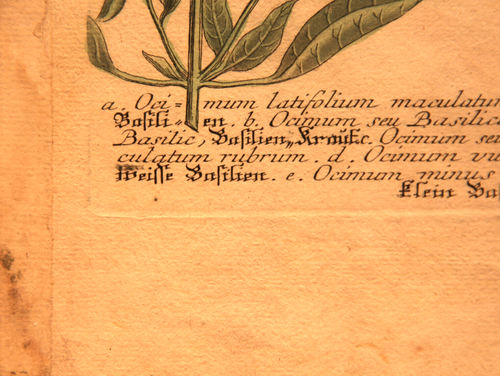 a. Oci= mum latifolium maculatum
Basili= en. b. Ocimum seu Basilic
Basilic, Basilien„Kraut c. Ocimum seu
culatum rubrum. d. Ocimum vu
Weisse Basilien. e. Ocimum minus
Klein Ba